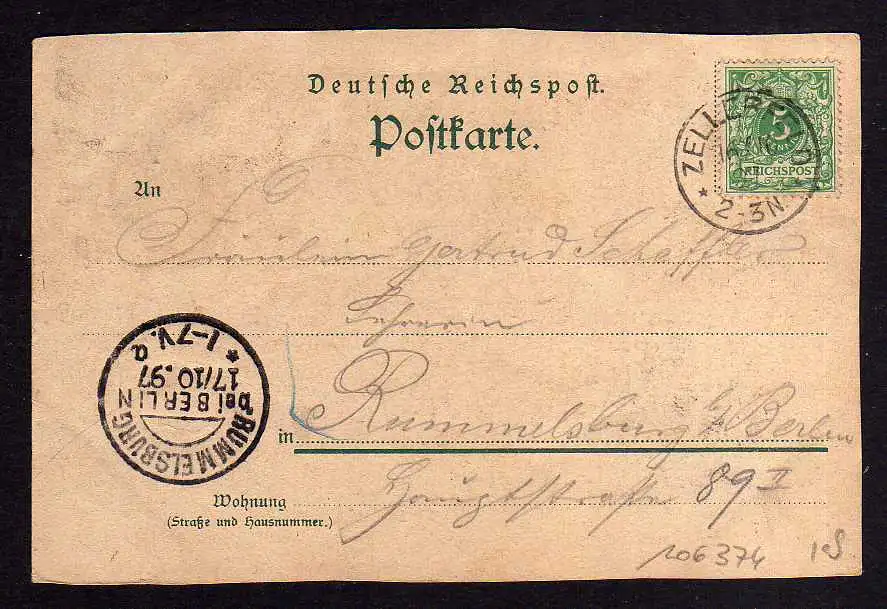 Deutsche Reichspost.
Postkarte.
ZELLERFELD
5
REICHSPOST
2-3N.
An
Fräulein Gertrud Scheffler
Lehrerin
in Rummelsburg b/ Berlin
Wohnung Hauptstraße 89 II
(Straße und Hausnummer.)
RUMMELSBURG
bei BERLIN
17/10.97
* 1-7V. a
106374